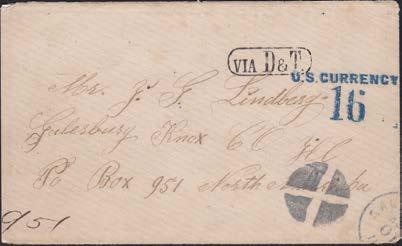 VIA D&T.
U.S. CURRENCY
16
Mr. J. G. Lindberg
Galesburg Knox CO
Ill
Po Box 951 North America
951